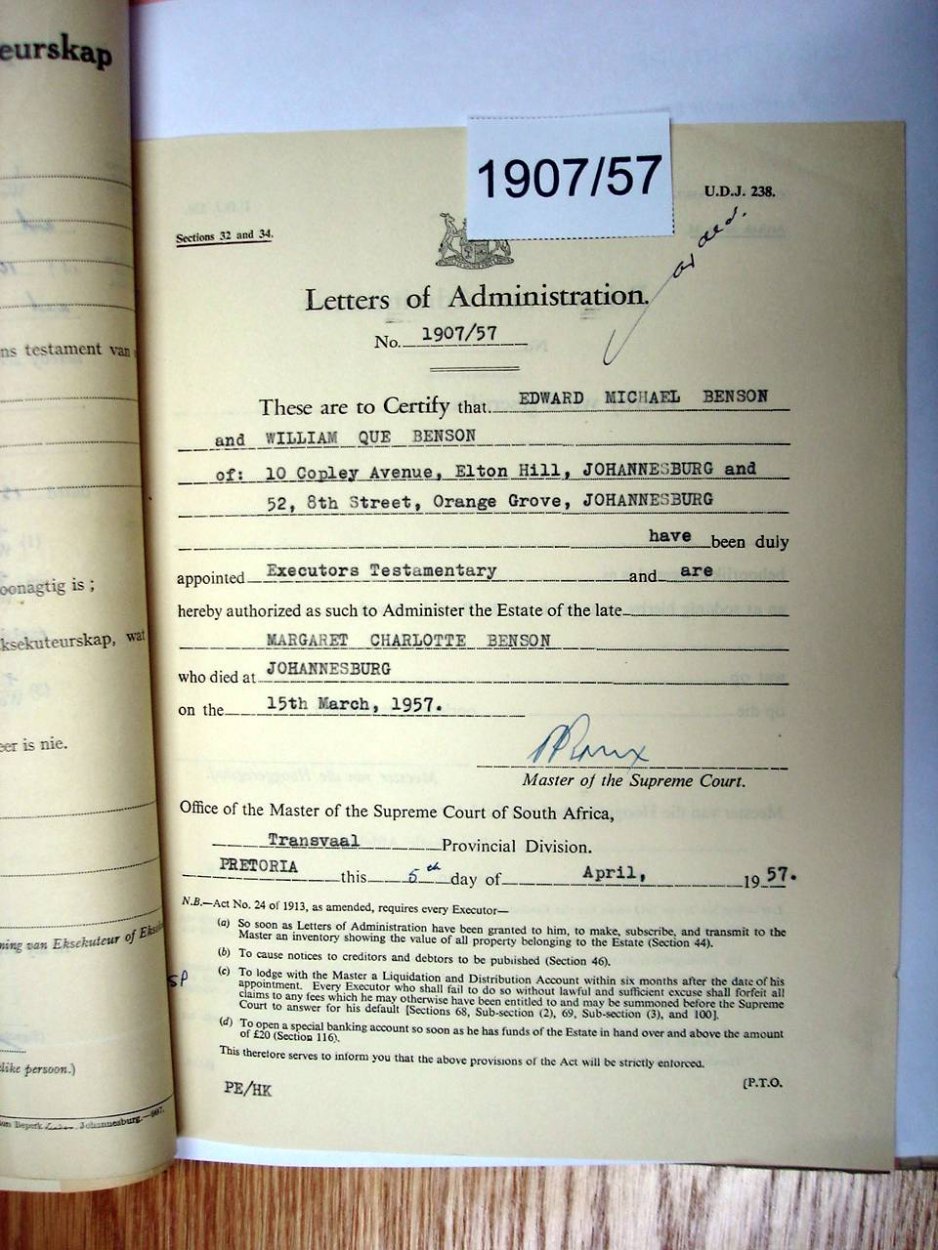 eurskap
ns testament van
oonagtig is ;
ksekuteurskap, wat
eer is nie.
ning van Eksekuteur of
like persoon.)
Beperk
Johannesburg.
1907/57
U.D.J. 238.
Sections 32 and 34.
Letters of Administration.
No. 1907/57
These are to Certify that EDWARD MICHAEL BENSON
and WILLIAM QUE BENSON
of: 10 Copley Avenue, Elton Hill, JOHANNESBURG and
52, 8th Street, Orange Grove, JOHANNESBURG
have been duly
appointed Executors Testamentary and are
hereby authorized as such to Administer the Estate of the late
MARGARET CHARLOTTE BENSON
who died at JOHANNESBURG
on the 15th March, 1957.
Master of the Supreme Court.
Office of the Master of the Supreme Court of South Africa,
Transvaal Provincial Division.
PRETORIA this 5th day of April, 1957.
N.B.—Act No. 24 of 1913, as amended, requires every Executor—
(a) So soon as Letters of Administration have been granted to him, to make, subscribe, and transmit to the
Master an inventory showing the value of all property belonging to the Estate (Section 44).
(b) To cause notices to creditors and debtors to be published (Section 46).
(c) To lodge with the Master a Liquidation and Distribution Account within six months after the date of his
appointment. Every Executor who shall fail to do so without lawful and sufficient excuse shall forfeit all
claims to any fees which he may otherwise have been entitled to and may be summoned before the Supreme
Court to answer for his default [Sections 68, Sub-section (2), 69, Sub-section (3), and 100].
(d) To open a special banking account so soon as he has funds of the Estate in hand over and above the amount
of £20 (Section 116).
This therefore serves to inform you that the above provisions of the Act will be strictly enforced.
PE/HK
[P.T.O.